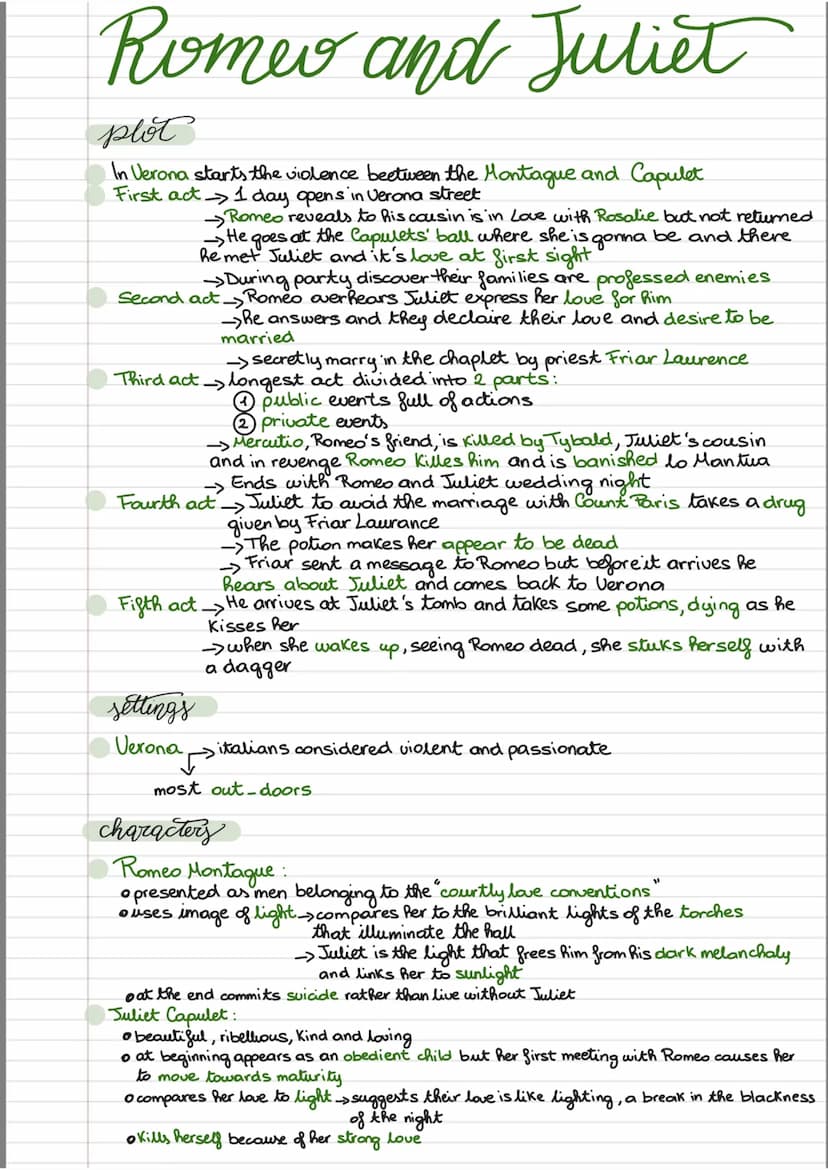 Romeo and Juliet
plot
In Verona starts the violence beetween the Montague and Capulet
First act → 1 day opens in Verona street
→ Romeo reveals to his cousin is in love with Rosalie but not returned
→ He goes at the Capulets' ball where she is gonna be and there
he met Juliet and it's love at first sight
→ During party discover their families are professed enemies
Second act → Romeo overhears Juliet express her love for him
→ he answers and they declaire their love and desire to be
married
→ secretly marry in the chaplet by priest Friar Laurence
Third act → longest act divided into 2 parts:
① public events full of actions
② private events
→ Mercutio, Romeo's friend, is killed by Tybald, Juliet's cousin
and in revenge Romeo kills him and is banished to Mantua
→ Ends with Romeo and Juliet wedding night
Fourth act → Juliet to avoid the marriage with Count Paris takes a drug
given by Friar Laurance
→ The potion makes her appear to be dead
→ Friar sent a message to Romeo but before it arrives he
hears about Juliet and comes back to Verona
Fifth act → He arrives at Juliet's tomb and takes some potions, dying as he
kisses her
→ when she wakes up, seeing Romeo dead, she stuks herself with
a dagger
settings
Verona → italians considered violent and passionate
↓
most out-doors
characters
Romeo Montague:
o presented as men belonging to the "courtly love conventions"
o uses image of light → compares her to the brilliant lights of the torches
that illuminate the hall
→ Juliet is the light that frees him from his dark melanchaly
and links her to sunlight
o at the end commits suicide rather than live without Juliet
Juliet Capulet:
o beautiful, ribellious, kind and loving
o at beginning appears as an obedient child but her first meeting with Romeo causes her
to move towards maturity
o compares her love to light → suggests their love is like lighting, a break in the blackness
of the night
o kills herself because of her strong love